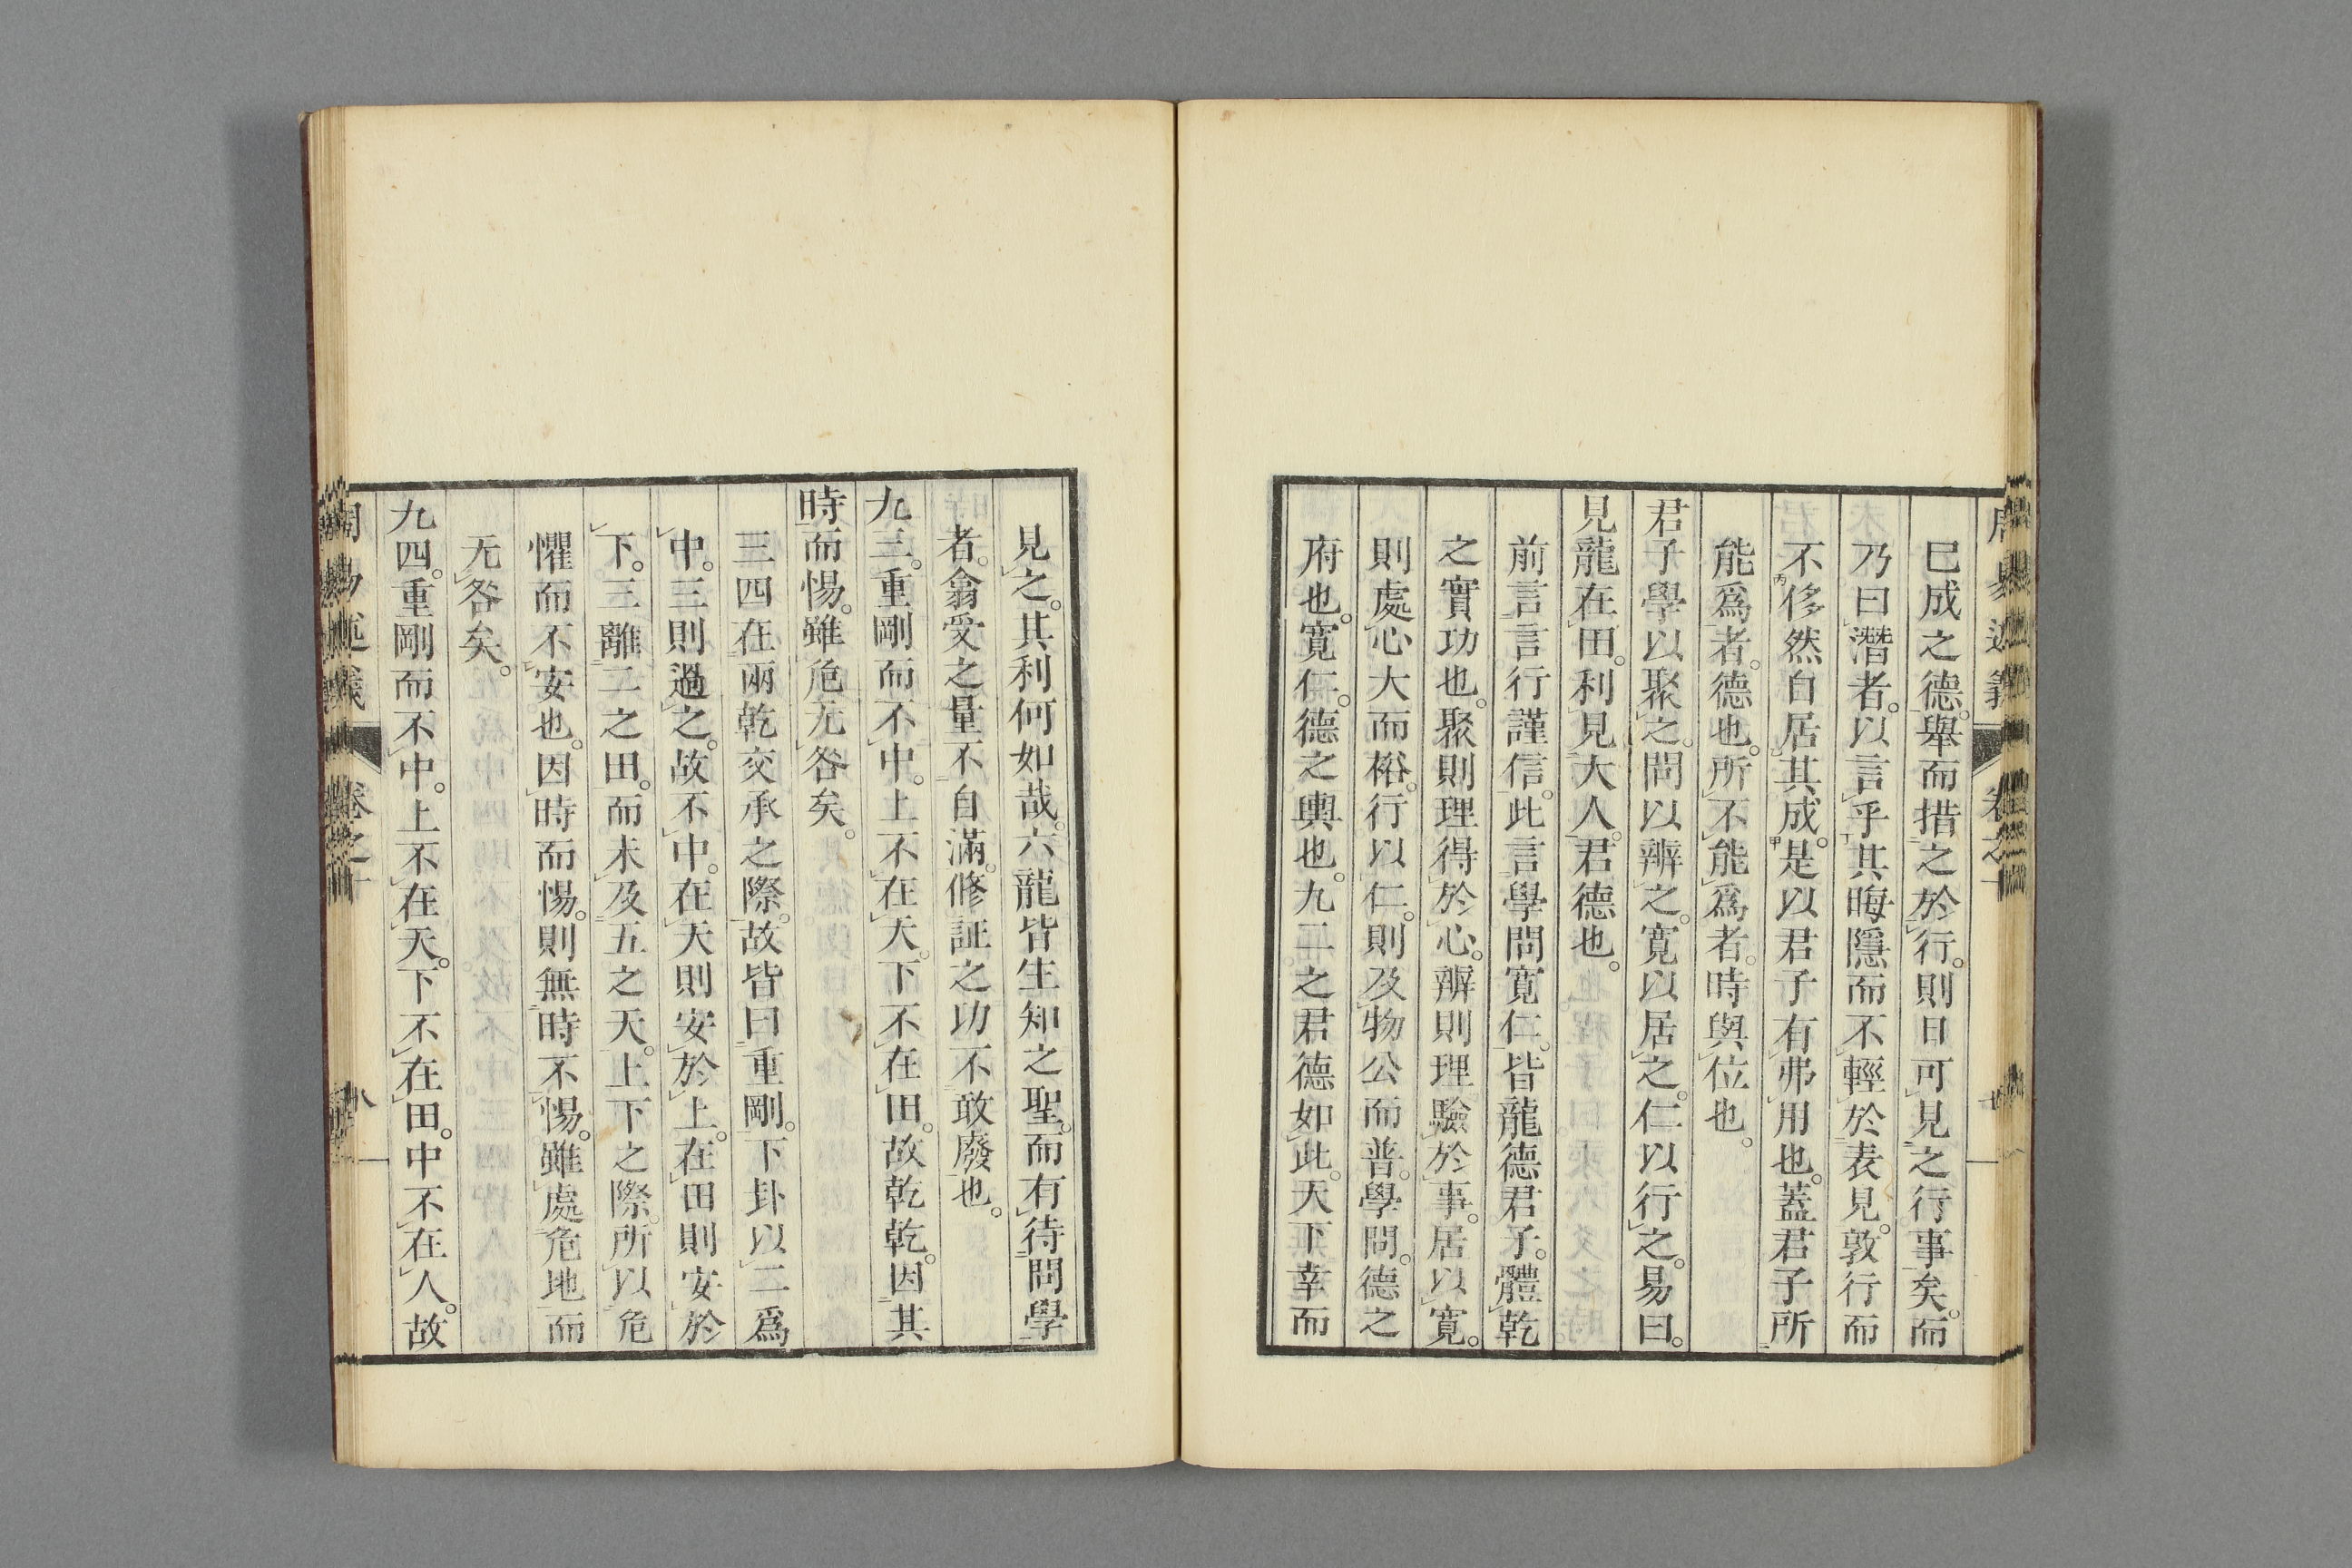 巳成之德。舉而措之於行。則日可見之行事矣。而
乃曰潛者。以言乎其晦隱而不輕於表見。敦行而
不侈然自居其成。是以君子有弗用也。蓋君子所
能爲者。德也。所不能爲者。時與位也。
君子學以聚之。問以辨之。寬以居之。仁以行之。易曰。
見龍在田。利見大人。君德也。
前言言行謹信。此言學問寬仁。皆龍德君子。體乾
之實功也。聚則理得於心。辨則理驗於事。居以寬。
則處心大而裕。行以仁。則及物公而普。學問。德之
府也。寬仁。德之輿也。九二之君德如此。天下幸而
見之。其利何如哉。六龍皆生知之聖。而有待問學
者。翕受之量。不自滿。修証之功。不敢廢也。
九三。重剛而不中。上不在天。下不在田。故乾乾。因其
時而惕。雖危无咎矣。
三四在兩乾交承之際。故皆曰重剛。下卦以二爲
中。三則過之。故不中。在天則安於上。在田則安於
下。三離二之田。而未及五之天。上下之際。所以危
懼而不安也。因時而惕。則無時不惕。雖處危地而
无咎矣。
九四。重剛而不中。上不在天。下不在田。中不在人。故